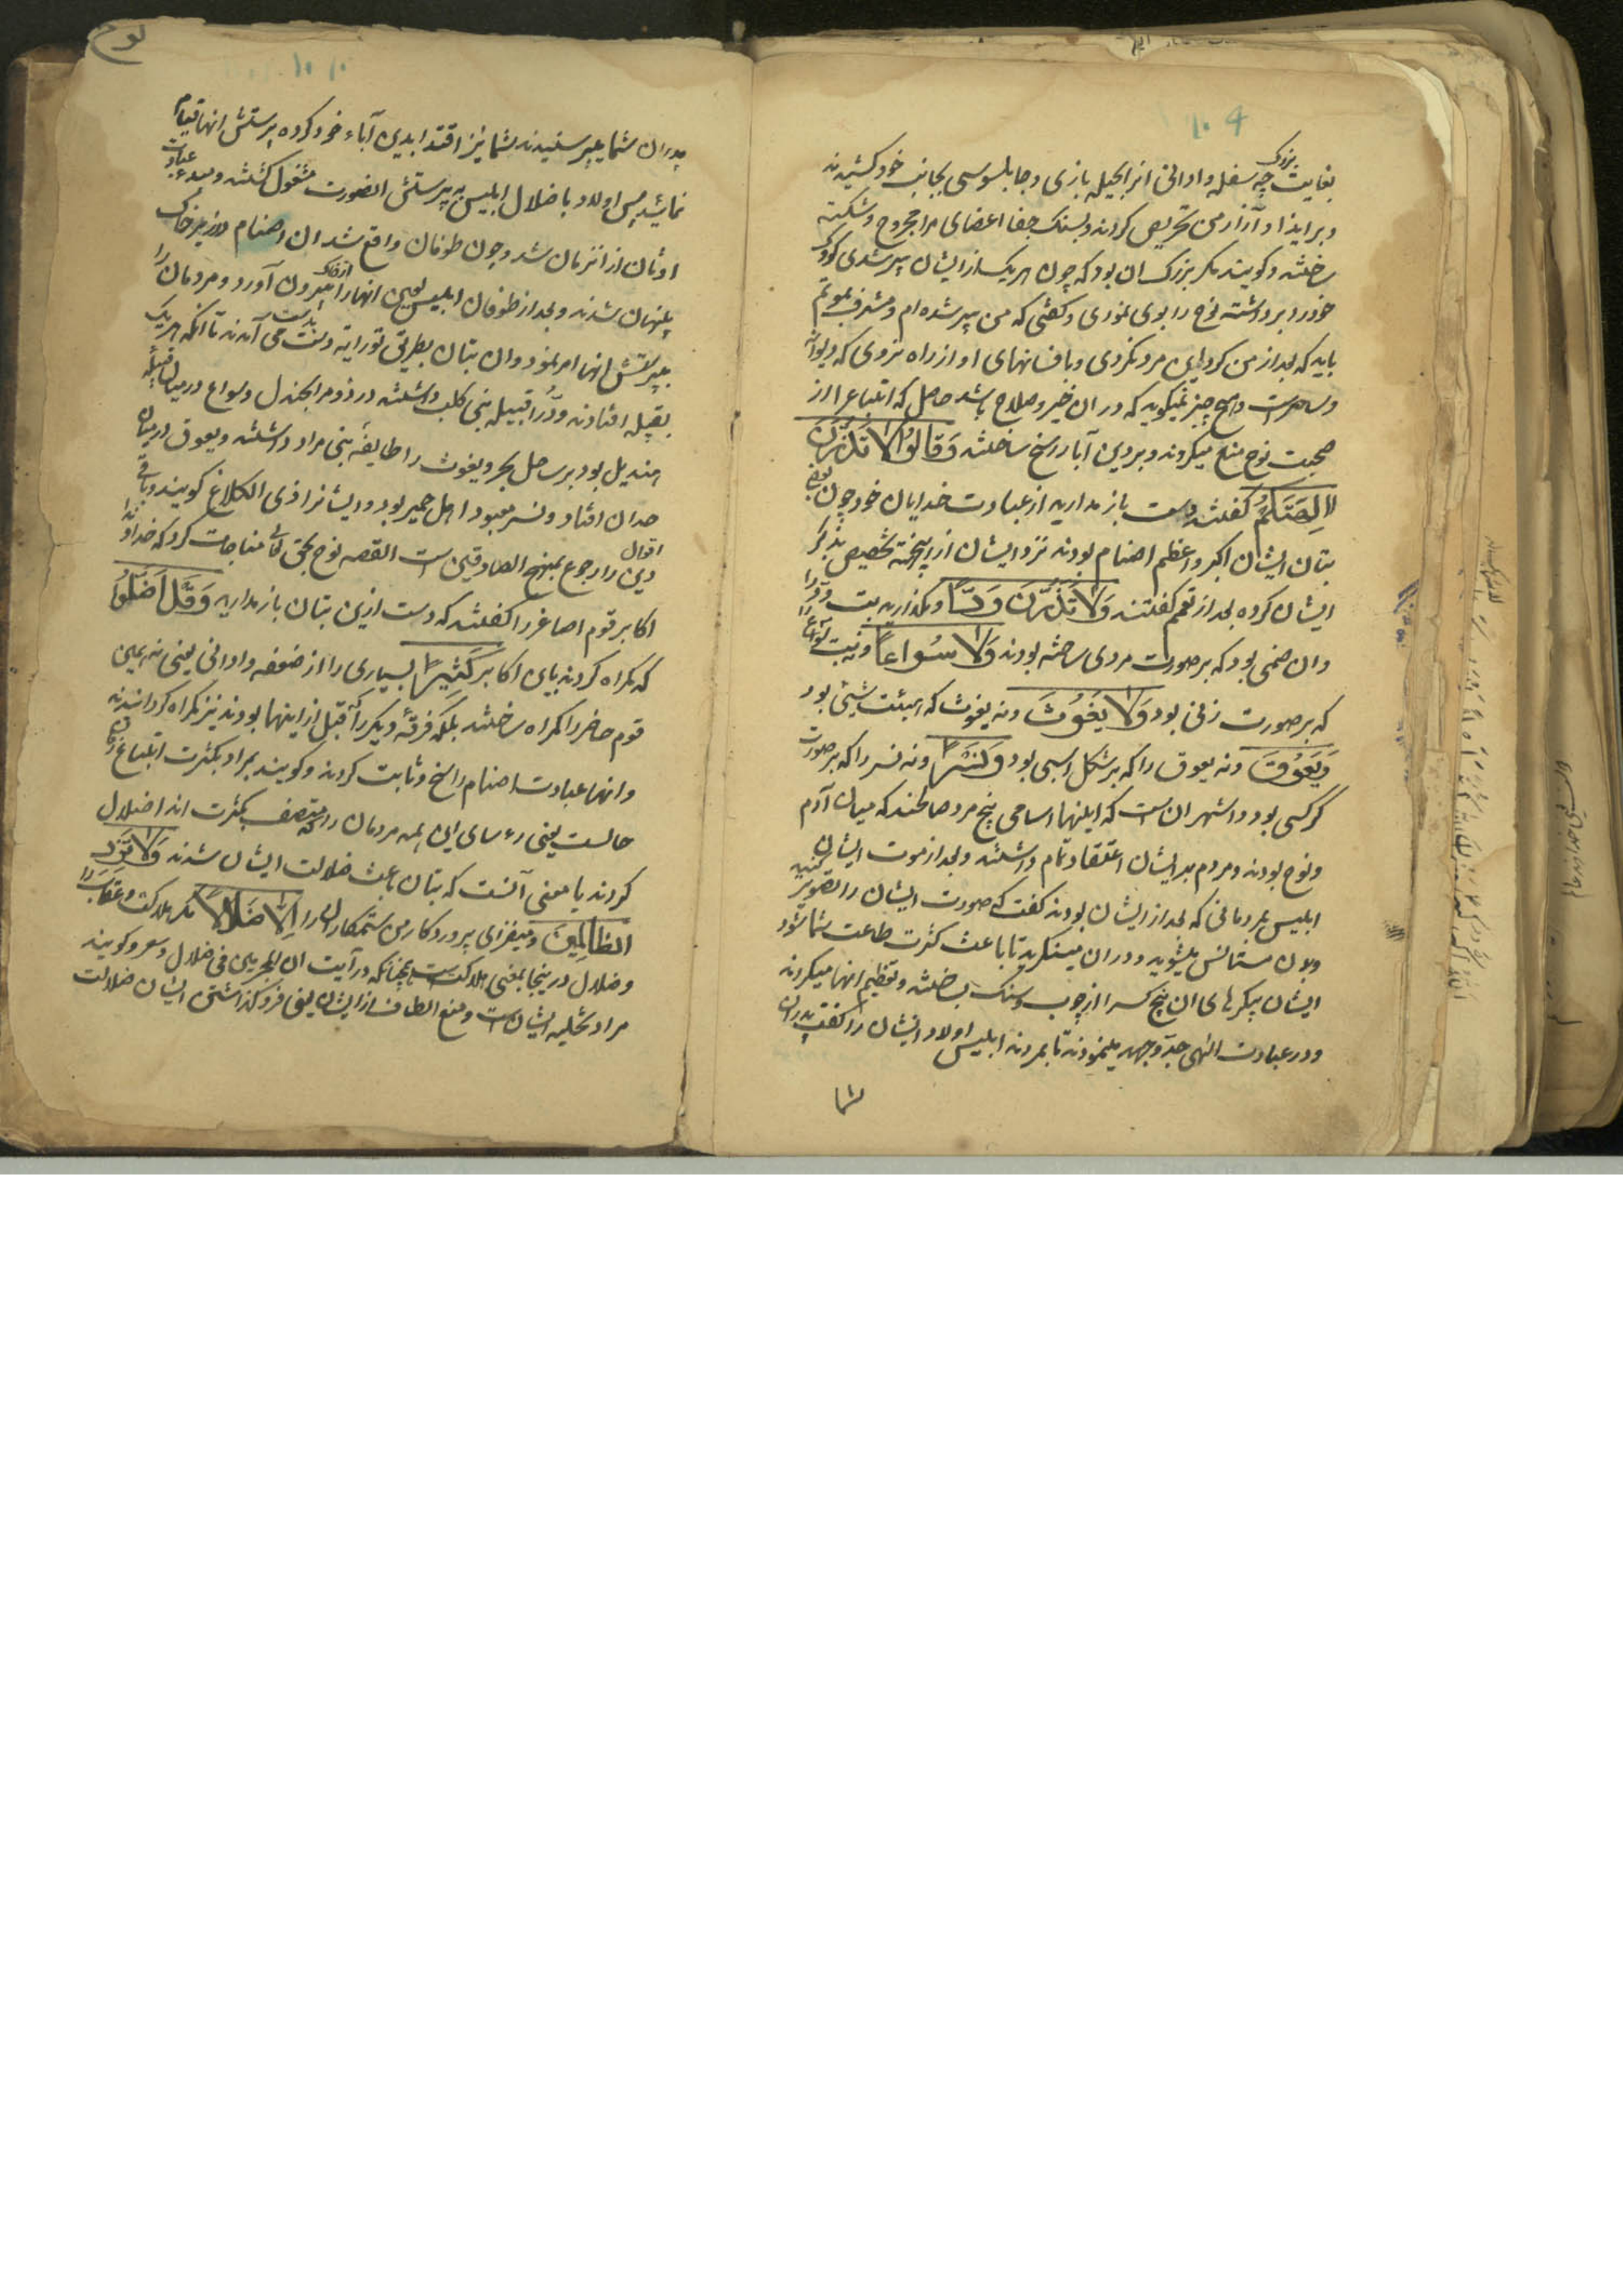 بغایت بزرک چه سفله و ادانی را بحیله بازی و چابلوسی بجانب خود کشیدند
و بر ایذا و آزار من تحریص کردند و بسنک جفا اعضای مرا مجروح و شکسته
ساختند و کویند مکر بزرک ان بود که چون هریک از ایشان پیر شدی کودک
خود را برداشته نوح را بوی نمودی و کفتی که من پیر شده ام و مشرف بموتم
باید که بعد از من کرد این مرد نکردی و بافسانهای او از راه نروی که دیوانه
و ساحرست و هیچ چیز نمیکوید که در ان خیر و صلاح باشد حاصل که اتباع را از
صحبت نوح منع میکردند و بر دین آبا راسخ ساختند وَقَالُوا لَا تَذَرُنَّ
اٰلِهَتَكُمْ کفتند دست باز مدارید از عبادت خدایان خود چون بعضی
بتان ایشان اکبر و اعظم اصنام بودند نزد ایشان از اینجهته تخصیص بذکر
ایشان کرده بعد از تعمیم کفتند وَلَا تَذَرُنَّ وَدًّا و مکذارید بت ود را
وان صنمی بود که بر صورت مردی ساخته بودند وَلَا سُوَاعًا و نه بت سواع را
که بر صورت زنی بود وَلَا یَغُوثَ و نه یغوث که بهیئت شیئی بود
وَیَعُوقَ و نه یعوق را که بر شکل اسبی بود وَنَسْرًا و نه نسر را که بر صورت
کرکسی بود و اشهر ان است که اینها اسامی پنج مرد صالحند که میان آدم
و نوح بودند و مردم بدیشان اعتقاد تمام داشتند و بعد از موت ایشان
ابلیس بمردمانی که بعد از ایشان بودند کفت که صورت ایشان را تصویر کنید
وبدن مستانس بشوید و در ان مینکرید تا باعث کثرت طاعت شما شود
ایشان پیکرهای ان پنج کس را از چوب و سنک بساختند و تعظیم انها میکردند
و در عبادت الهی جد و جهد مینمودند تا بمردند ابلیس اولاد ایشان را کفت پدران
شما
پدران شما میپرستیدند شما نیز اقتدا بدین آباء خود کرده پرستش انها قیام
نمایید پس اولاد باضلال ابلیس به پرستش انصورت مشغول کشتند و مبدء عبادت
اوثان از انزمان شد و چون طوفان واقع شد ان اصنام در زیر خاک
پنهان شدند و بعد از طوفان ابلیس لعین انها را از خاک بیرون آورد و مردمان را
بپرستش انها امر نمود و ان بتان بطریق توراثه بدست می آمدند تا انکه هریک
بقبیله افتادند ود را قبیله بنی کلب داشتند در دومة الجندل و سواع در میان قبیله
هندیل بود بر ساحل بحر و یغوث را طایفه بنی مراد داشتند و یعوق در میان
همدان افتاد و نسر معبود اهل حمیر بود و ایشانرا ذی الکلاع کویند و باقی
اقوال
دین را رجوع بمنهج الصادقین است القصه نوح بحق تعالی مناجات کرد که خداوندا
اکابر قوم اصاغر را کفتند که دست ازین بتان باز مدارید وَقَدْ اَضَلُّوا
که کمراه کردند باین اکابر کَثِیرًا بسیاری را از ضعفه و ادانی یعنی نه همین
قوم حاضر را کمراه ساختند بلکه فرقه دیکر را که قبل از اینها بودند نیز کمراه کردانیدند
و انها عبادت اصنام راسخ و ثابت کردند و کویند مراد بکثرت اتباع
حالست یعنی رءسای این همه مردمان را که متصف بکثرت اند اضلال
کردند یا معنی آنست که بتان باعث ضلالت ایشان شدند وَلَا تَزِدِ
الظَّالِمِینَ و میفزای پروردکار من ستمکاران را اِلَّا ضَلَالًا مکر هلاکت و عقاب را
و ضلال در ینجا بمعنی هلاکت است چنانکه در آیت ان المجرمین فی ضلال و سعر و کویند
مراد تخلیه ایشان است و منع الطاف از ایشان یعنی فرو کذاشتن ایشان ضلالت